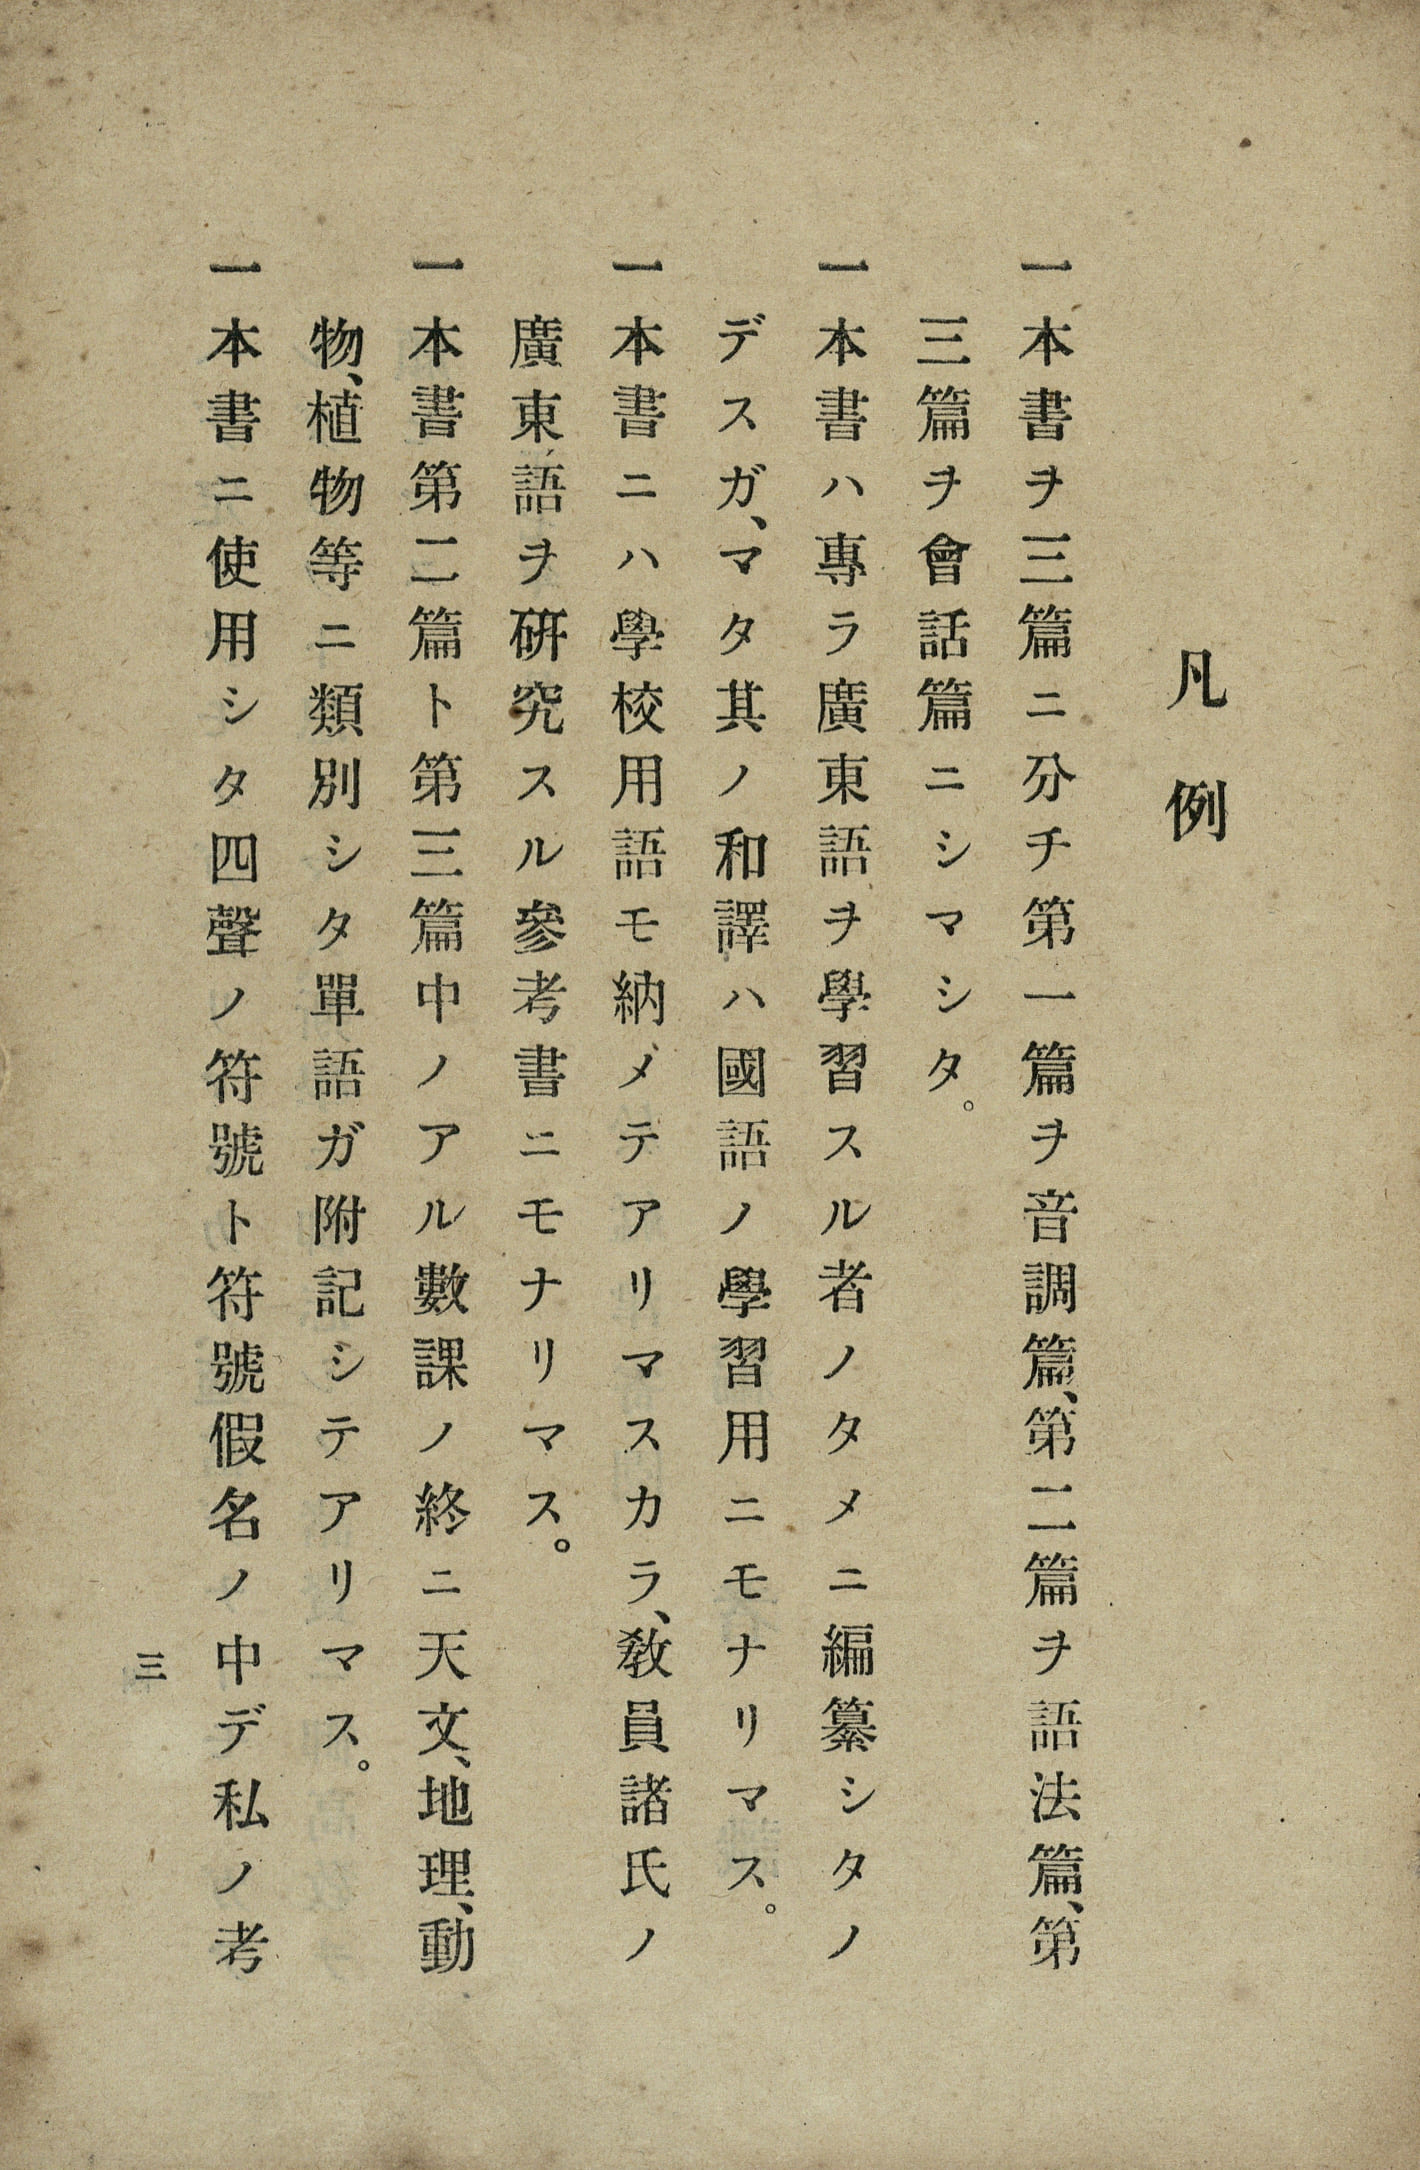 凡例
一本書ヲ三篇ニ分チ第一篇ヲ音調篇、第二篇ヲ語法篇、第
三篇ヲ會話篇ニシマシタ。
一本書ハ專ラ廣東語ヲ學習スル者ノタメニ編纂シタノ
デスガ、マタ其ノ和譯ハ國語ノ學習用ニモナリマス。
一本書ニハ學校用語モ納メテアリマスカラ、敎員諸氏ノ
廣東語ヲ硏究スル參考書ニモナリマス。
一本書第二篇ト第三篇中ノアル數課ノ終ニ天文、地理、動
物、植物等ニ類別シタ單語ガ附記シテアリマス。
一本書ニ使用シタ四聲ノ符號ト符號假名ノ中デ私ノ考
三